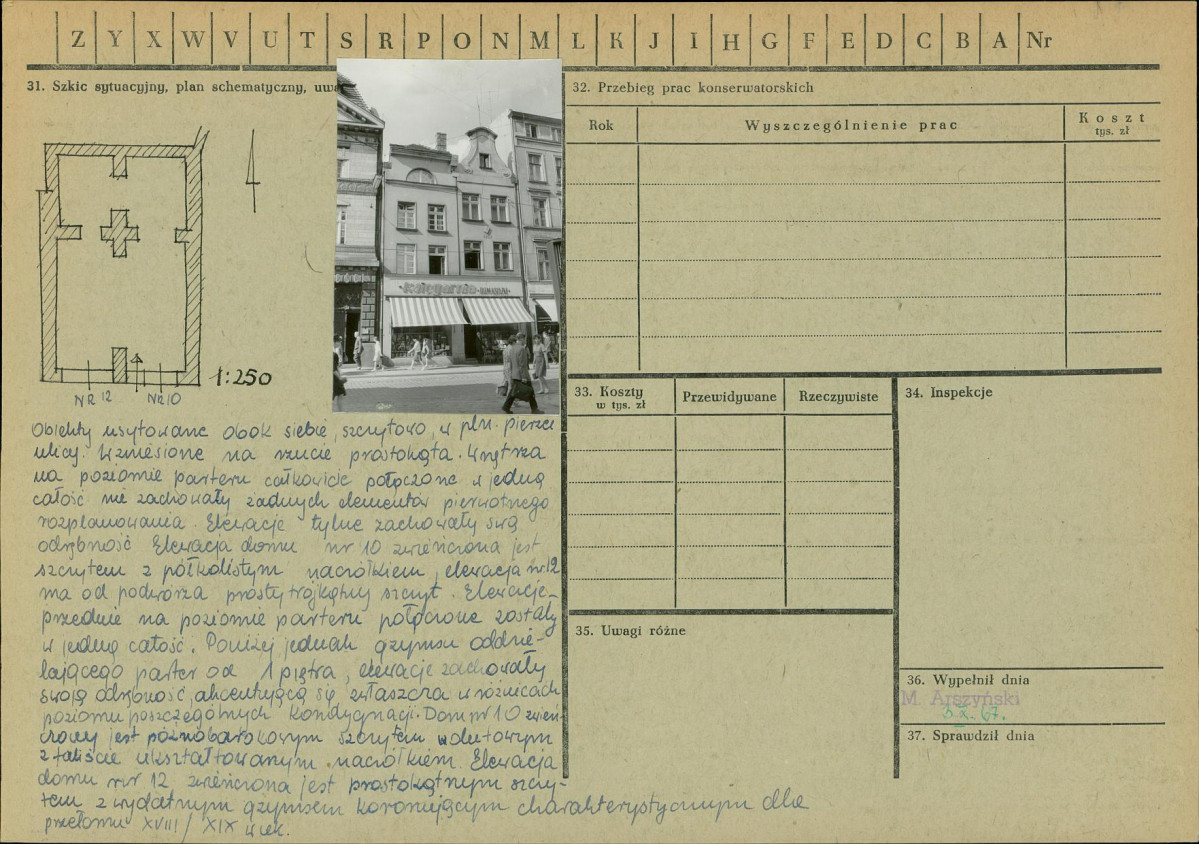 Z Y X W V U T S R P O N M L K J I H G F E D C B A Nr
31. Szkic sytuacyjny, plan schematyczny, uw
księgarnia
1:250
NR 12 NR 10
Obiekty usytowane obok siebie, szczytowo, w płn. pierzei
ulicy. Wzniesione na rzucie prostokąta. Wnętrza
na poziomie parteru całkowicie połączone w jedną
całość nie zachowały żadnych elementów pierwotnego
rozplanowania. Elewacje tylne zachowały swą
odrębność Elewacja domu nr 10 zwieńczona jest
szczytem z półkolistym naczółkiem, elewacja nr 12
ma od podwórza prosty trójkątny szczyt. Elewacje
przednie na poziomie parteru połączone zostały
w jedną całość. Powyżej jednak gzymsu oddzie-
lającego parter od 1 piętra, elewacje zachowały
swoją odrębność, akcentującą się zwłaszcza w różnicach
poziomu poszczególnych kondygnacji. Dom nr 10 zwień-
czony jest późnobarokowym szczytem wolutowym
z faliście ukształtowanym naczółkiem. Elewacja
domu nr 12 zwieńczona jest prostokątnym szczy-
tem z wydatnym gzymsem koronującym charakterystycznym dla
przełomu XVIII/XIX wiek.
32. Przebieg prac konserwatorskich
Rok Wyszczególnienie prac Koszt
tys. zł
33. Koszty
w tys. zł
Przewidywane Rzeczywiste
34. Inspekcje
35. Uwagi różne
36. Wypełnił dnia
M. Arszyński
5.X.67.
37. Sprawdził dnia